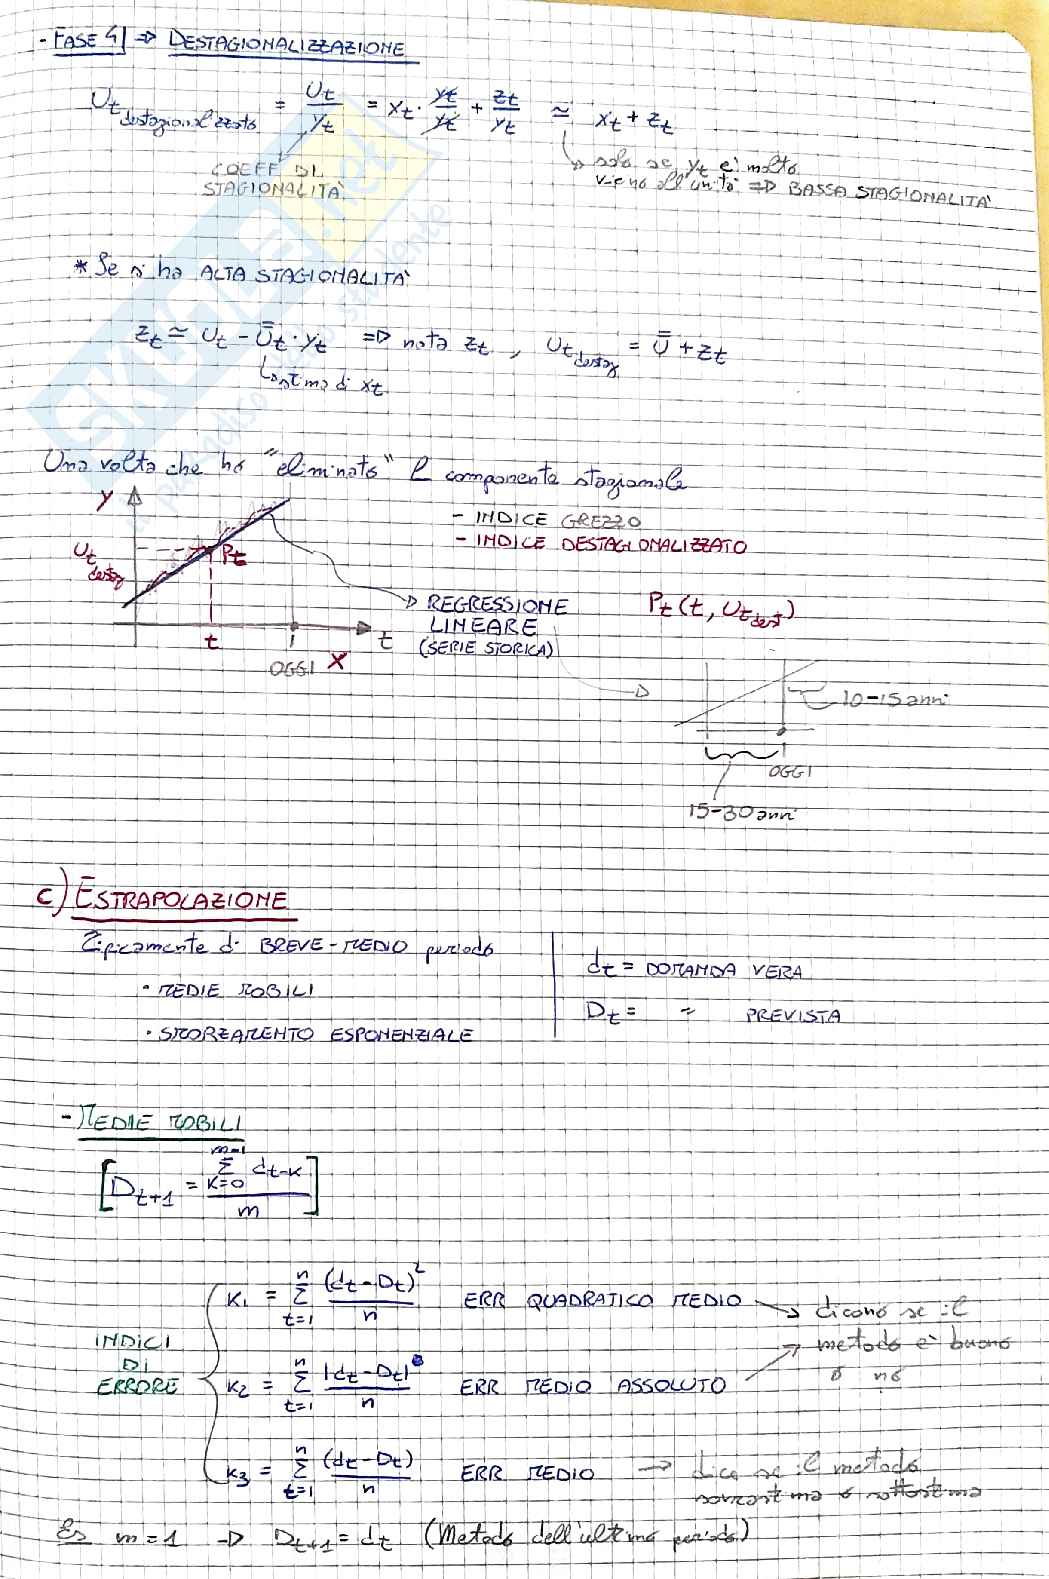 - FASE 4 ⇒ DESTAGIONALIZZAZIONE
Ut destagionalizzato = Ut/yt = xt · yt/yt + zt/yt ≃ xt + zt
COEFF DI STAGIONALITÀ
solo se yt è molto
vicino all'unità ⇒ BASSA STAGIONALITÀ
* Se si ha ALTA STAGIONALITÀ
zt ≃ Ut - U̿t · yt ⇒ nota zt , Ut destag = U̿ + zt
stima di xt
Una volta che ho "eliminato" l componente stagionale
Y
- INDICE GREZZO
- INDICE DESTAGIONALIZZATO
Ut destag
Pt
→ REGRESSIONE
LINEARE
(SERIE STORICA)
Pt (t, Ut dest)
t
t
OGGI
X
10-15 anni
OGGI
15-30 anni
C) ESTRAPOLAZIONE
Tipicamente di BREVE-MEDIO periodo
· MEDIE MOBILI
· SMORZAMENTO ESPONENZIALE
dt = DOMANDA VERA
Dt = " PREVISTA
- MEDIE MOBILI
[Dt+1 = Σ(k=0, m-1) dt-k / m]
INDICI
DI
ERRORE
K1 = Σ(t=1, n) (dt - Dt)² / n ERR QUADRATICO MEDIO → dicono se il
metodo è buono
o no
K2 = Σ(t=1, n) |dt - Dt| / n ERR MEDIO ASSOLUTO
K3 = Σ(t=1, n) (dt - Dt) / n ERR MEDIO → dice se il metodo
sovrastima o sottostima
Es m=1 → Dt+1 = dt (Metodo dell'ultimo periodo)
SKUOLA.net
il paradiso dello studente